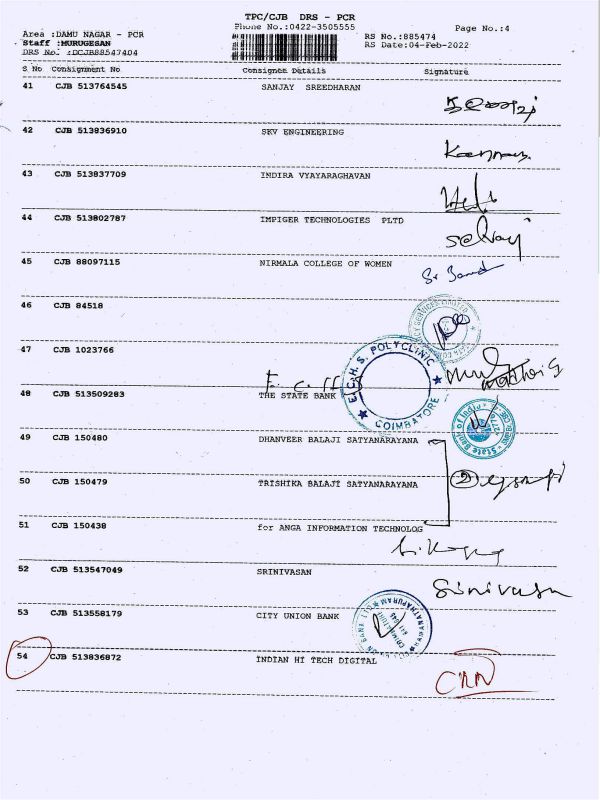 TPC/CJB DRS - PCR
Phone No.:0422-3505555
Page No.:4
Area :DAMU NAGAR - PCR
Staff :MURUGESAN
DRS No. :DCJB88547404
RS No.:885474
RS Date:04-Feb-2022
S No Consignment No Consignee Details Signature
41 CJB 513764545 SANJAY SREEDHARAN
42 CJB 513836910 SKV ENGINEERING
43 CJB 513837709 INDIRA VYAYARAGHAVAN
44 CJB 513802787 IMPIGER TECHNOLOGIES PLTD
Selvaj
45 CJB 88097115 NIRMALA COLLEGE OF WOMEN
46 CJB 84518
47 CJB 1023766
E.C.H.S. POLYCLINIC
COIMBATORE
48 CJB 513509283 THE STATE BANK
State Bank
49 CJB 150480 DHANVEER BALAJI SATYANARAYANA
50 CJB 150479 TRISHIKA BALAJI SATYANARAYANA
51 CJB 150438 for ANGA INFORMATION TECHNOLOG
52 CJB 513547049 SRINIVASAN
Srinivasan
53 CJB 513558179 CITY UNION BANK
RAMANATHAPURAM
54 CJB 513836872 INDIAN HI TECH DIGITAL